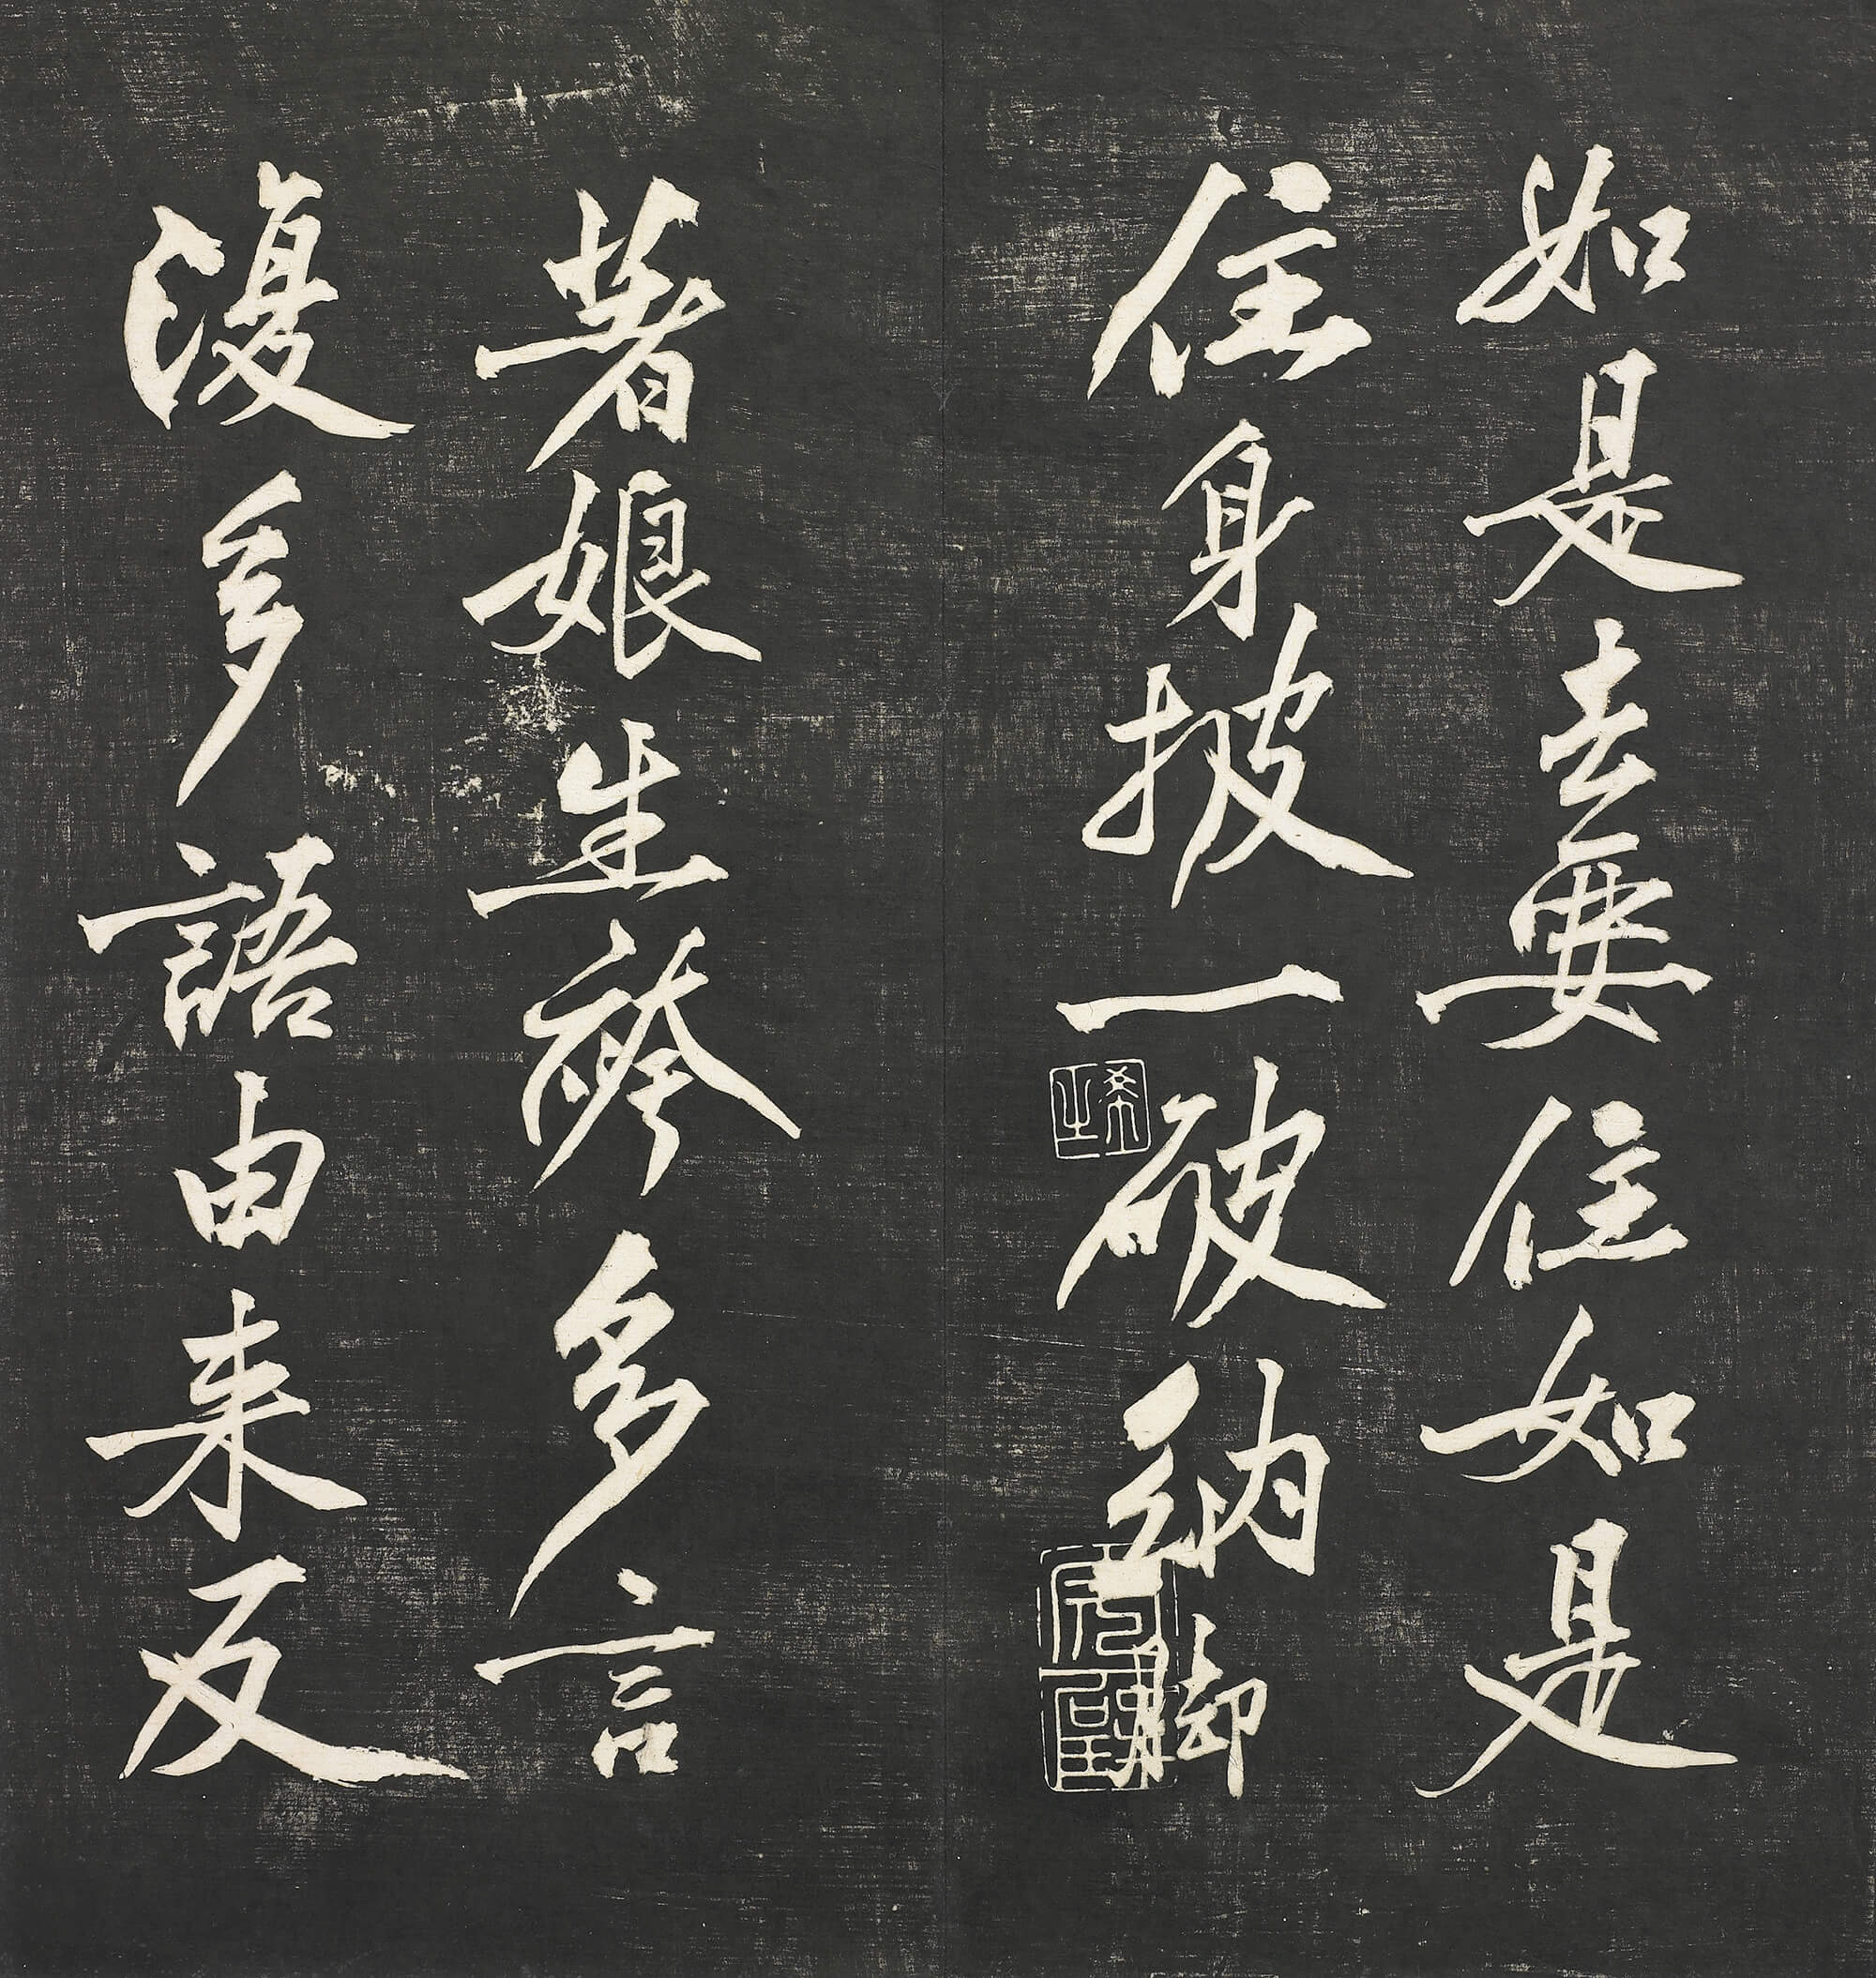 如是去要住如是
住身披一破納脚
著娘生袴多言
復多語由来反
希之